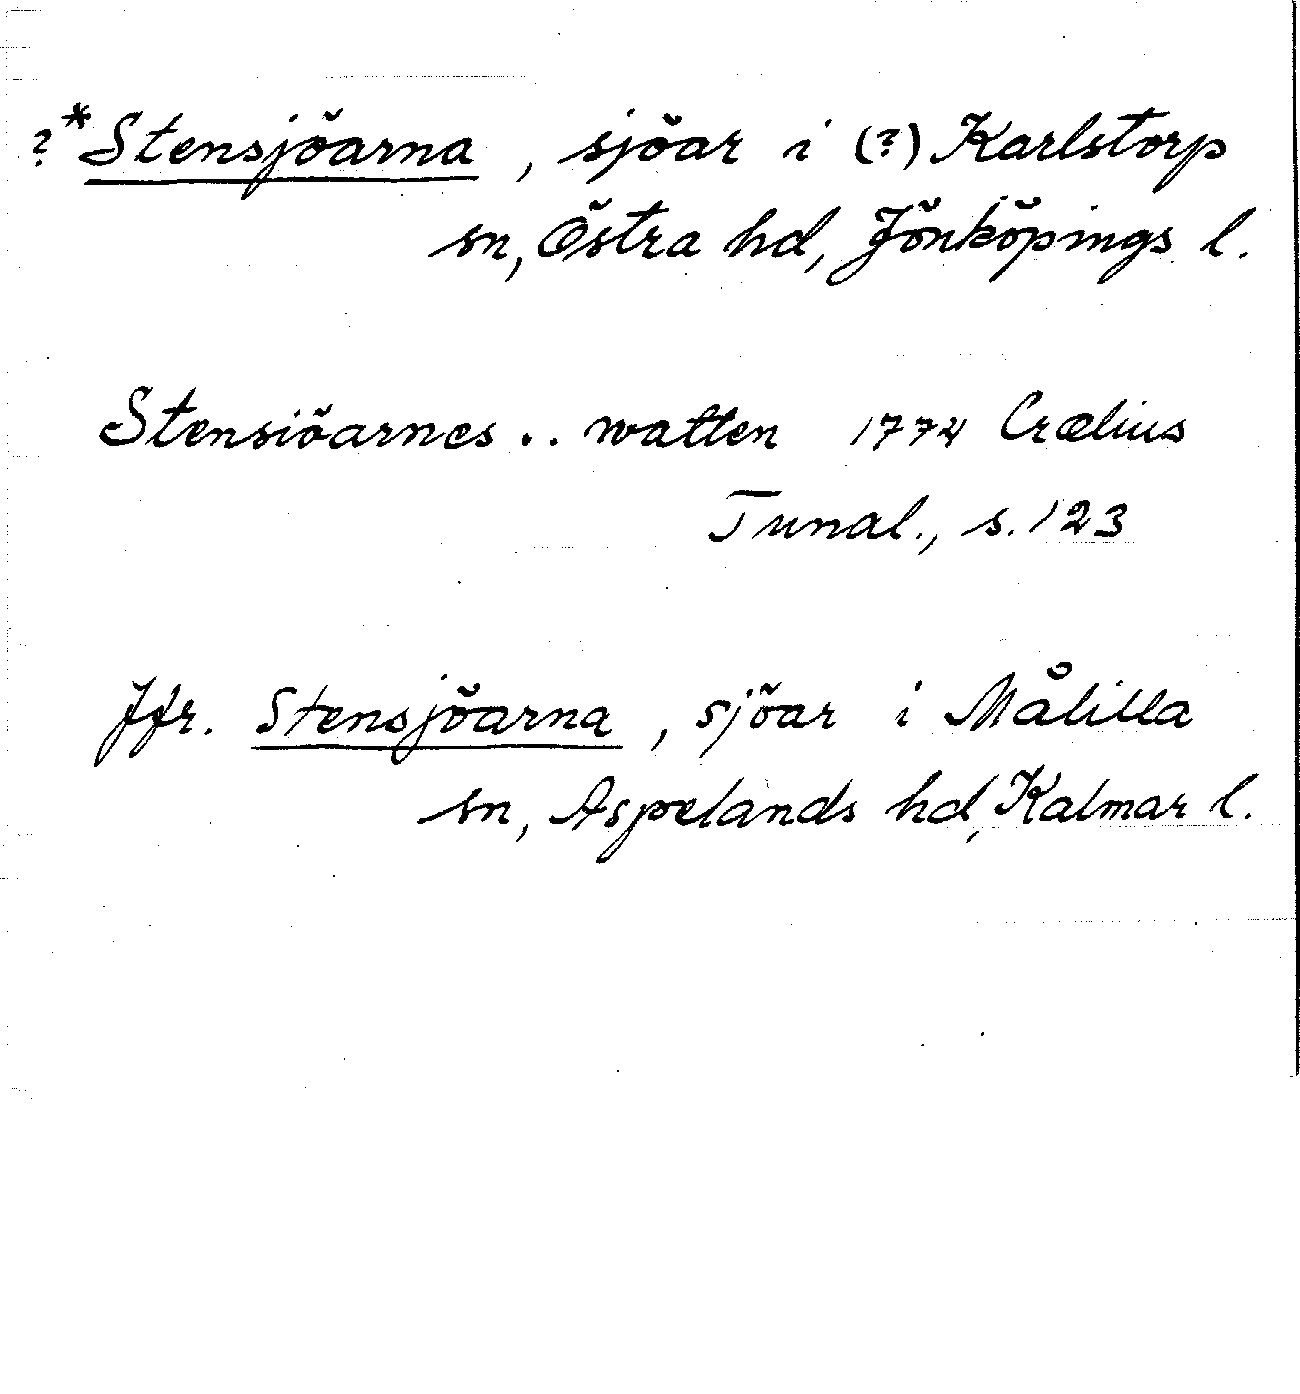 ?*Stensjöarna, sjöar i (?) Karlstorp
sn, Östra hd, Jönköpings l.
Stensiöarnes .. watten 1774 Crælius
Tunal., s. 123
Jfr. Stensjöarna, sjöar i Målilla
sn, Aspelands hd, Kalmar l.